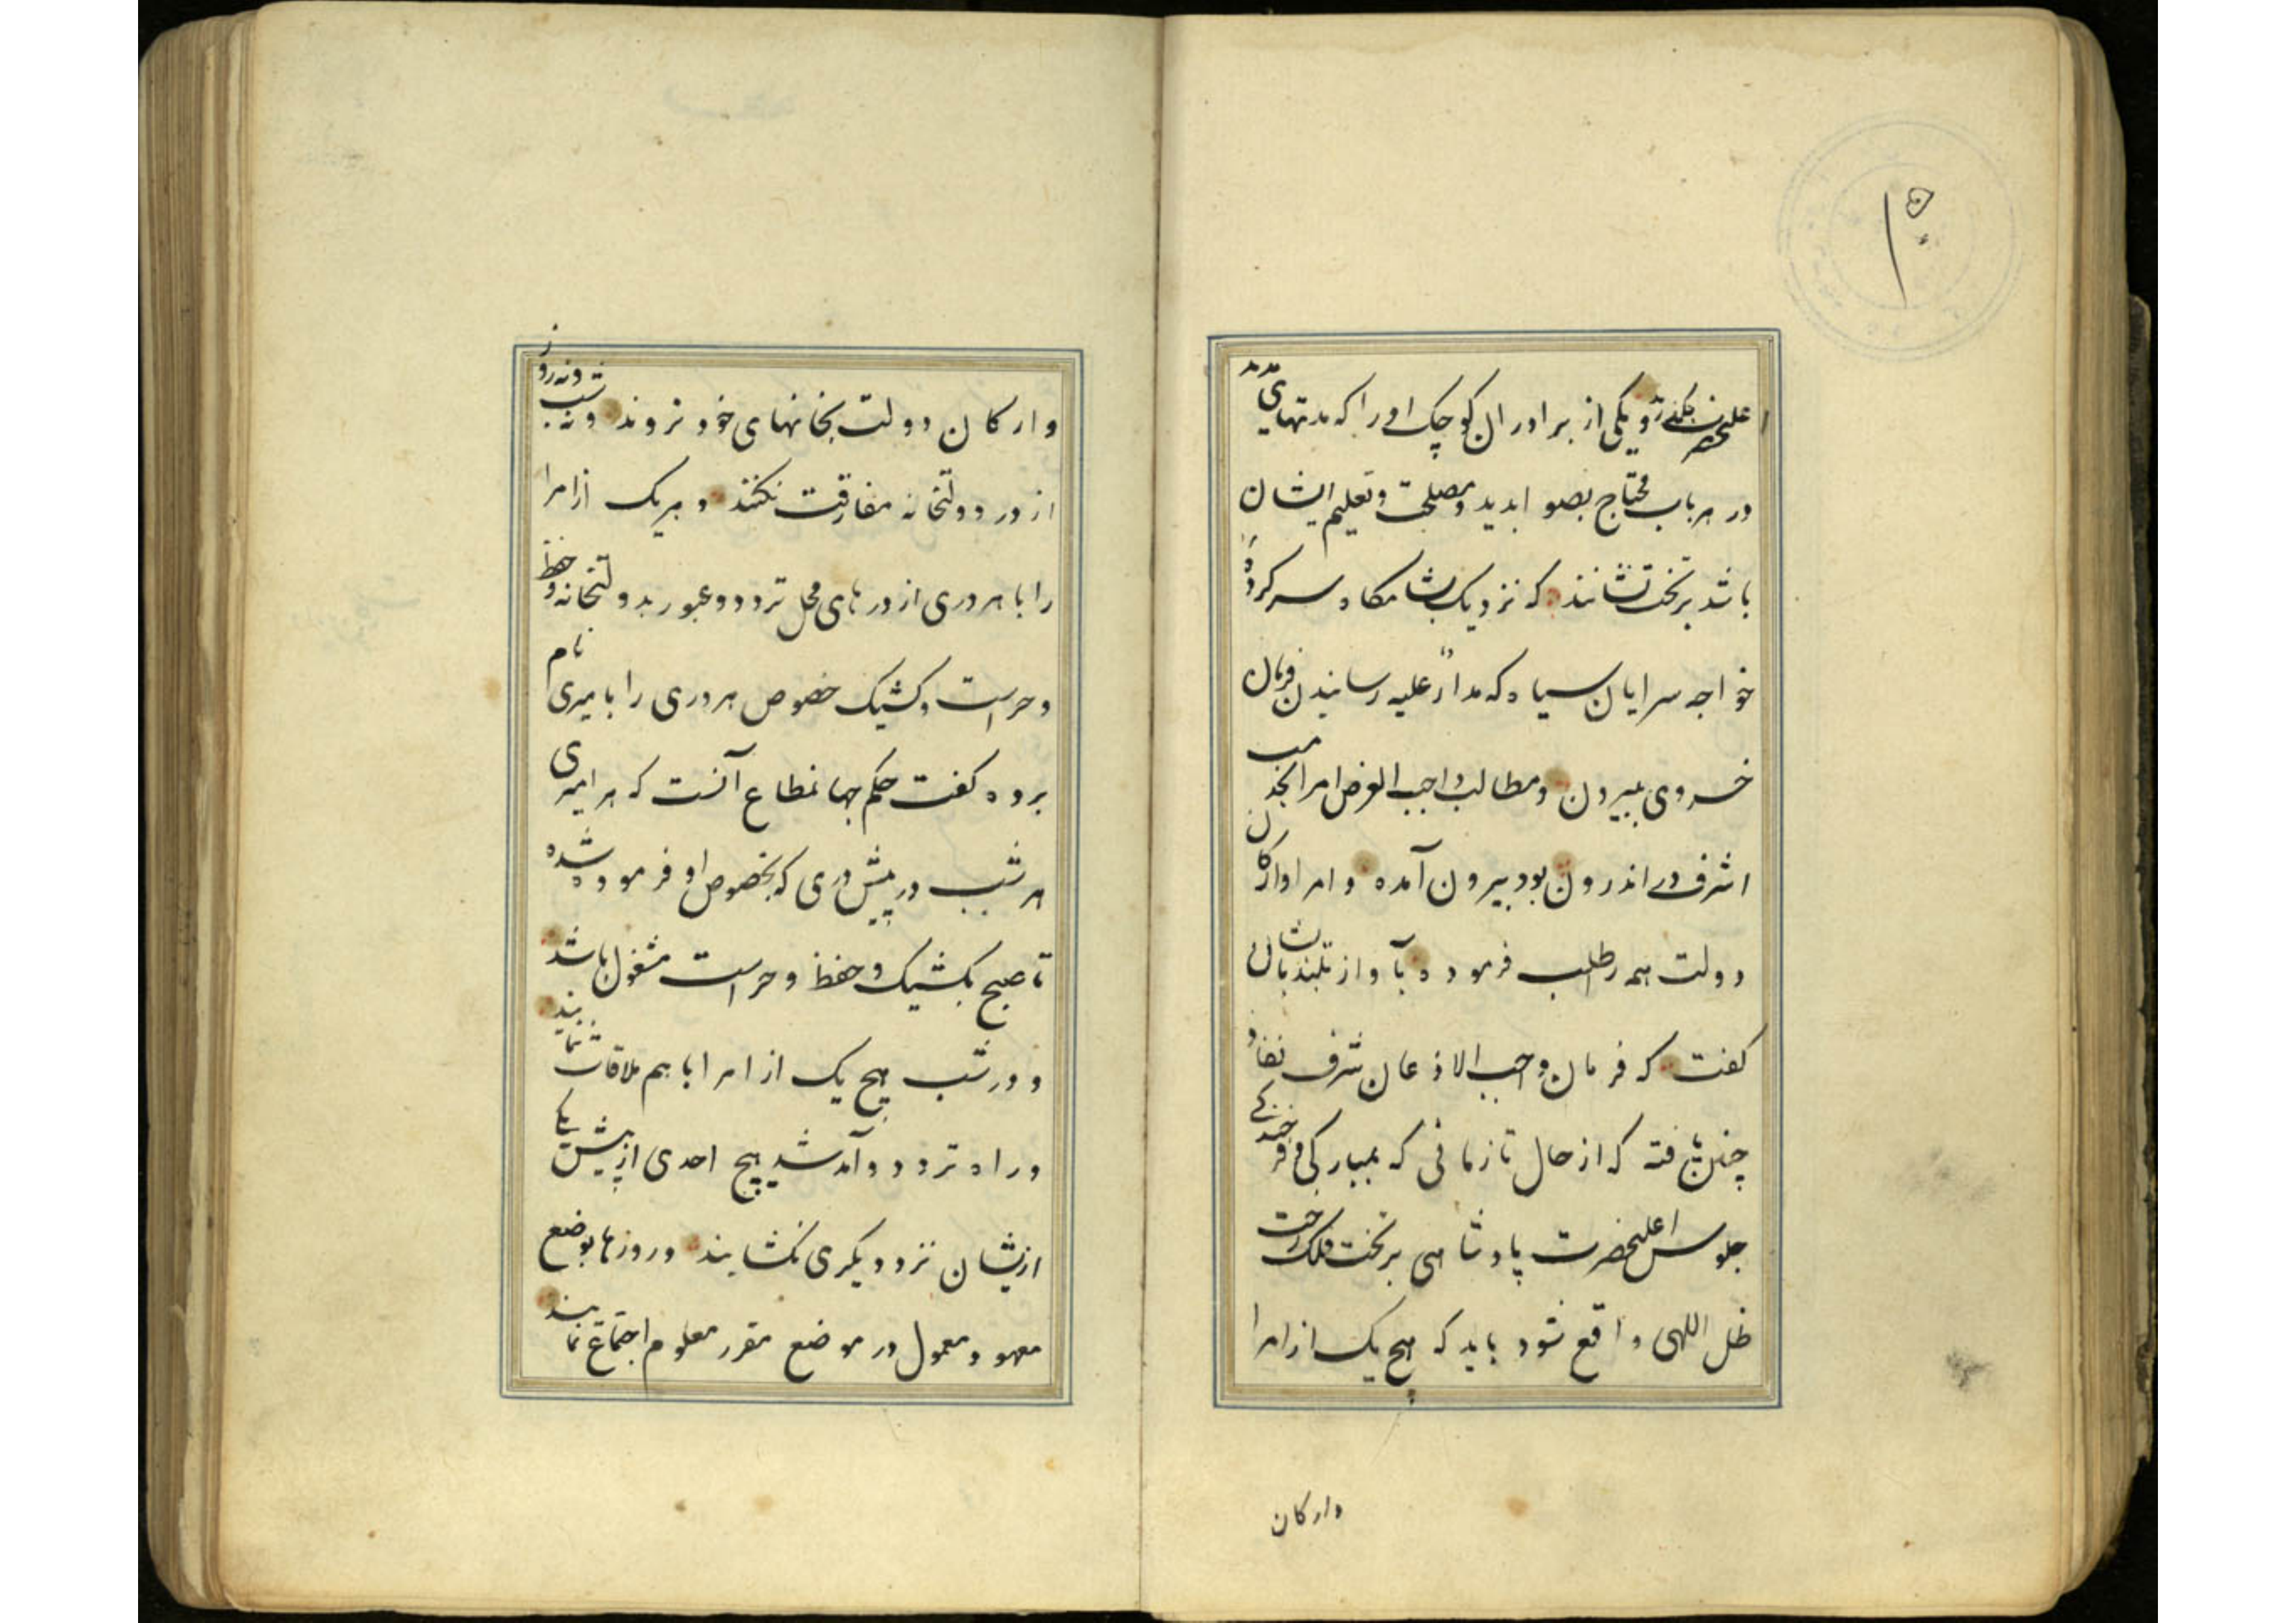 اعلیحضرت بکنند و یکی از برادران کوچک او را که مدتهای مدید
در هر باب محتاج بصوابدید و مصلحت و تعلیم ایشان
باشد بر تخت نشانند که نزدیک بشامگاه سرکرده
خواجه سرایان سیاه که مدار علیه رسانیدن فرمان
خسروی ببیرون و مطالب واجب العرض امرا بخدمت
اشرف در اندرون بود بیرون آمده و امرا و ارکان
دولت همه را طلب فرموده بآواز بلند بایشان
گفت که فرمان واجب الاذعان شرف نفاذ
چنین یافته که از حال تا زمانی که بمبارکی و فرخندگی
جلوس اعلیحضرت پادشاهی بر تخت فلک رخت
ظل اللهی واقع شود باید که هیچ یک از امرا
وارکان
و ارکان دولت بخانهای خود نروند و نه شب و نه روز
از در دولتخانه مفارقت نکنند و هر یک از امرا
را با هر دری از درهای محل تردد و عبور بدولتخانه و حفظ
و حراست و کشیک خصوص هر دری را با میری نام
برده گفت حکم جهانمطاع آنست که هر امیری
هر شب در پیش دری که بخصوص او فرموده شده
تا صبح بکشیک و حفظ و حراست مشغول باشد
و در شب هیچ یک از امرا با هم ملاقات ننمایند
و راه تردد و آمد شد هیچ احدی از پیش یکی
ازیشان نزد دیگری نگشایند و روزها بوضع
معهود و معمول در موضع مقرر معلوم اجتماع نمایند